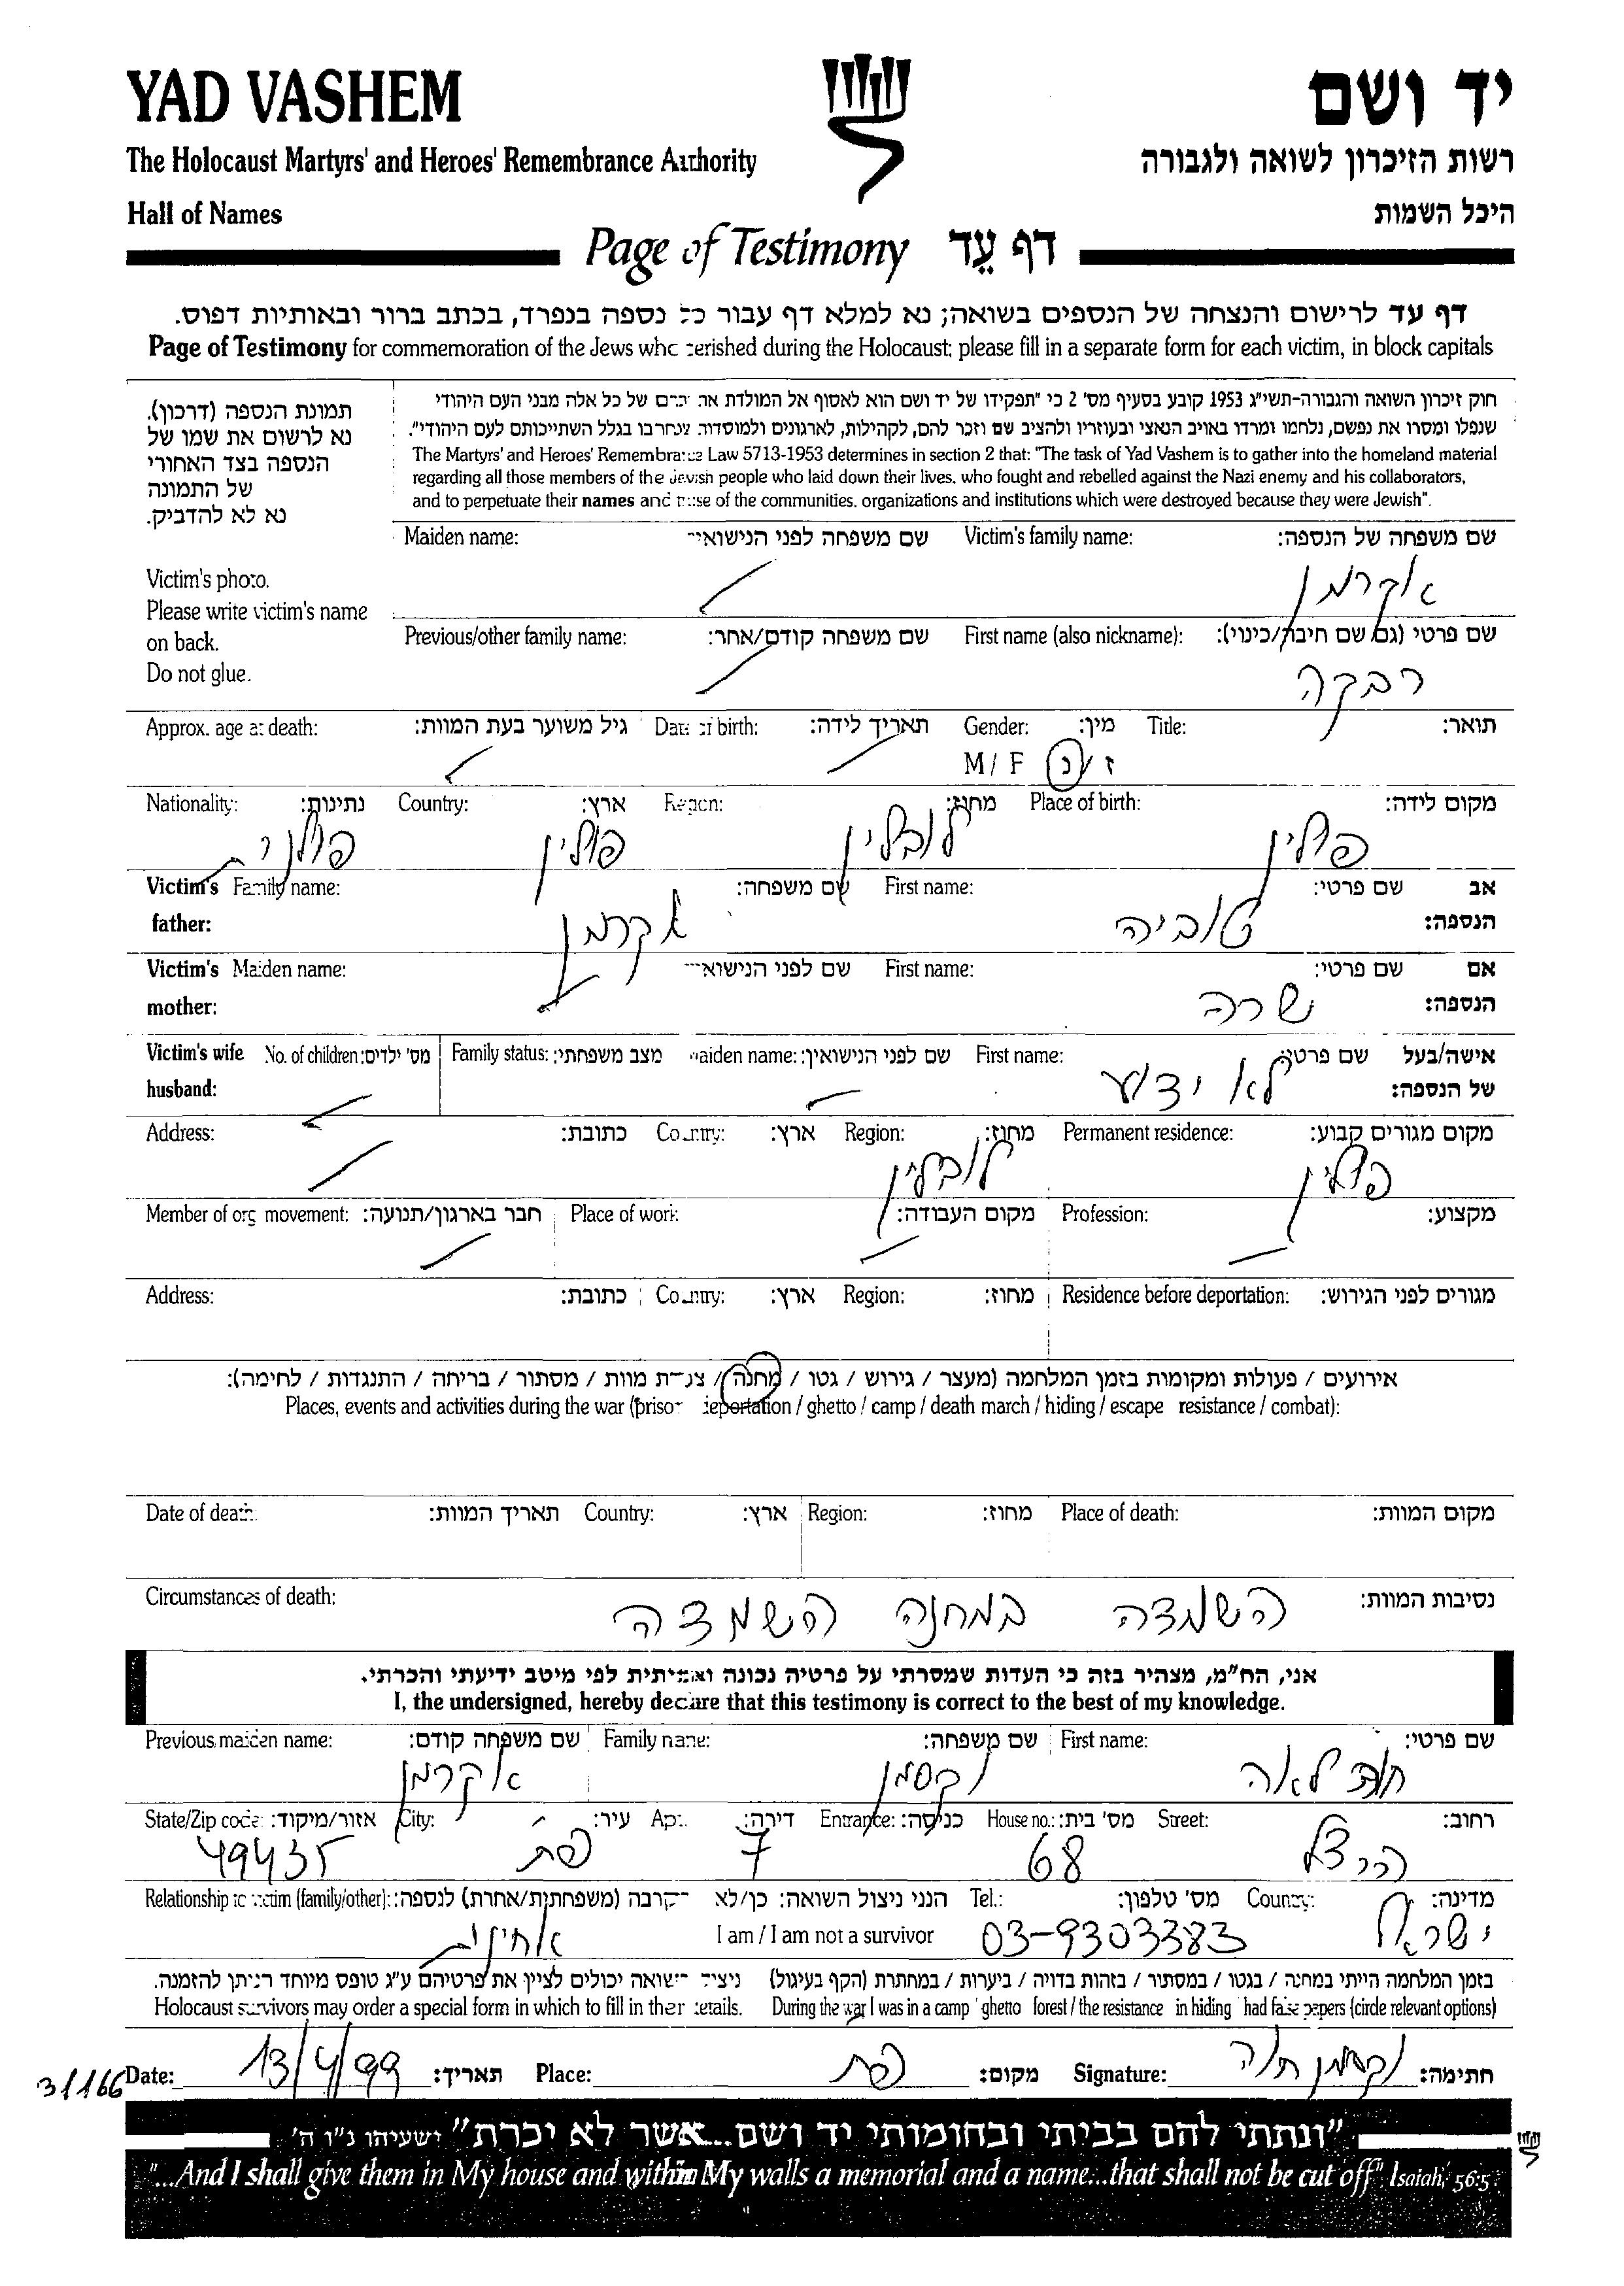 YAD VASHEM
יד ושם
The Holocaust Martyrs' and Heroes' Remembrance Authority
רשות הזיכרון לשואה ולגבורה
Hall of Names
היכל השמות
Page of Testimony דף עֵד
דף עד לרישום והנצחה של הנספים בשואה; נא למלא דף עבור כל נספה בנפרד, בכתב ברור ובאותיות דפוס.
Page of Testimony for commemoration of the Jews who perished during the Holocaust; please fill in a separate form for each victim, in block capitals
תמונת הנספה (דרכון).
נא לרשום את שמו של
הנספה בצד האחורי
של התמונה
נא לא להדביק.
Victim's photo.
Please write victim's name
on back.
Do not glue.
חוק זיכרון השואה והגבורה-תשי"ג 1953 קובע בסעיף מס' 2 כי "תפקידו של יד ושם הוא לאסוף אל המולדת את זכרם של כל אלה מבני העם היהודי
שנפלו ומסרו את נפשם, נלחמו ומרדו באויב הנאצי ובעוזריו ולהציב שם וזכר להם, לקהילות, לארגונים ולמוסדות שנחרבו בגלל השתייכותם לעם היהודי".
The Martyrs' and Heroes' Remembrance Law 5713-1953 determines in section 2 that: "The task of Yad Vashem is to gather into the homeland material
regarding all those members of the Jewish people who laid down their lives, who fought and rebelled against the Nazi enemy and his collaborators,
and to perpetuate their names and those of the communities, organizations and institutions which were destroyed because they were Jewish".
Maiden name: שם משפחה לפני הנישואי Victim's family name: שם משפחה של הנספה:
אקרמן
Previous/other family name: שם משפחה קודם/אחר: First name (also nickname): שם פרטי (גם שם חיבה/כינוי):
רבקה
Approx. age at death: גיל משוער בעת המוות: Date of birth: תאריך לידה: Gender: מין: Title: תואר:
M / F ז / נ
Nationality: נתינות: Country: ארץ: Region: מחוז: Place of birth: מקום לידה:
פולנית פולין לובלין פולין
Victim's Family name: שם משפחה: First name: שם פרטי: אב
father: אקרמן טוביה הנספה:
Victim's Maiden name: שם לפני הנישואי First name: שם פרטי: אם
mother: שרה הנספה:
Victim's wife No. of children: מס' ילדים: Family status: מצב משפחתי: maiden name: שם לפני הנישואין: First name: שם פרטי: אישה/בעל
husband: לא ידוע של הנספה:
Address: כתובת: Country: ארץ: Region: מחוז: Permanent residence: מקום מגורים קבוע:
לובלין פולין
Member of org movement: חבר בארגון/תנועה: Place of work מקום העבודה: Profession: מקצוע:
Address: כתובת: Country: ארץ: Region: מחוז: Residence before deportation: מגורים לפני הגירוש:
אירועים / פעולות ומקומות בזמן המלחמה (מעצר / גירוש / גטו / מחנה / צעדת מוות / מסתור / בריחה / התנגדות / לחימה):
Places, events and activities during the war (prison deportation / ghetto / camp / death march / hiding / escape resistance / combat):
Date of death תאריך המוות: Country: ארץ: Region: מחוז: Place of death: מקום המוות:
Circumstances of death: נסיבות המוות:
השמדה במחנה השמדה
אני, הח"מ, מצהיר בזה כי העדות שמסרתי על פרטיה נכונה ואמיתית לפי מיטב ידיעתי והכרתי.
I, the undersigned, hereby declare that this testimony is correct to the best of my knowledge.
Previous maiden name: שם משפחה קודם: Family name: שם משפחה: First name: שם פרטי:
אקרמן וקסמן לאה
State/Zip code: אזור/מיקוד: City: עיר: Apt. דירה: Entrance: כניסה: House no.: מס' בית: Street: רחוב:
49435 פת 7 68 הרצל
Relationship to victim (family/other): קרבה (משפחתית/אחרת) לנספה: הנני ניצול השואה: כן/לא Tel.: מס' טלפון: Country: מדינה:
אחינית I am / I am not a survivor 03-9303383 ישראל
בזמן המלחמה הייתי במחנה / בגטו / במסתור / בזהות בדויה / ביערות / במחתרת (הקף בעיגול) ניצולי השואה יכולים לציין את פרטיהם ע"ג טופס מיוחד הניתן להזמנה.
Holocaust survivors may order a special form in which to fill in their details. During the war I was in a camp ghetto forest / the resistance in hiding had false papers (circle relevant options)
Date: 13/4/99 תאריך: Place: פת מקום: Signature: וקסמן חוה חתימה:
31166
"ונתתי להם בביתי ובחומותי יד ושם...אשר לא יכרת" ישעיהו נ"ו ה'
"...And I shall give them in My house and within My walls a memorial and a name...that shall not be cut off" Isaiah, 56:5